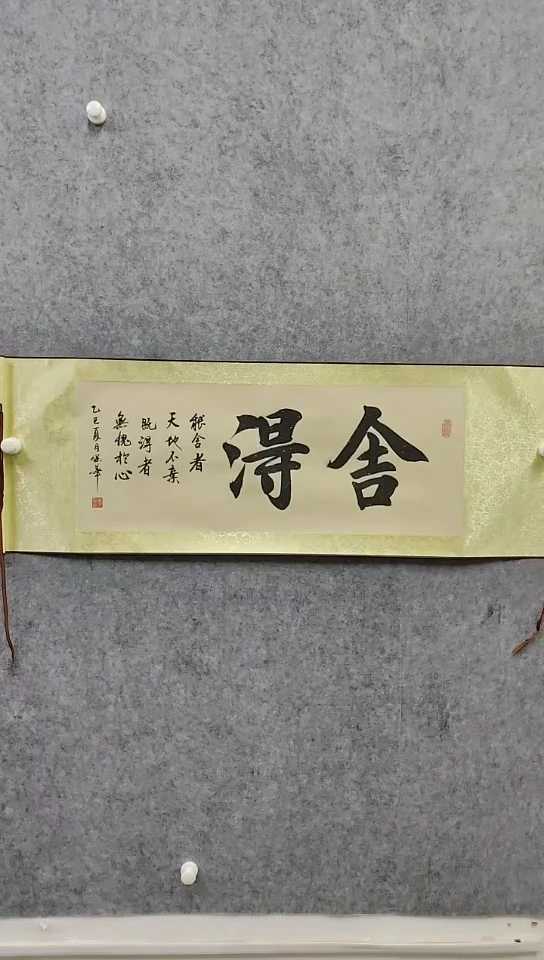 舍
得
能舍者
天地不棄
既得者
無愧於心
乙巳夏月